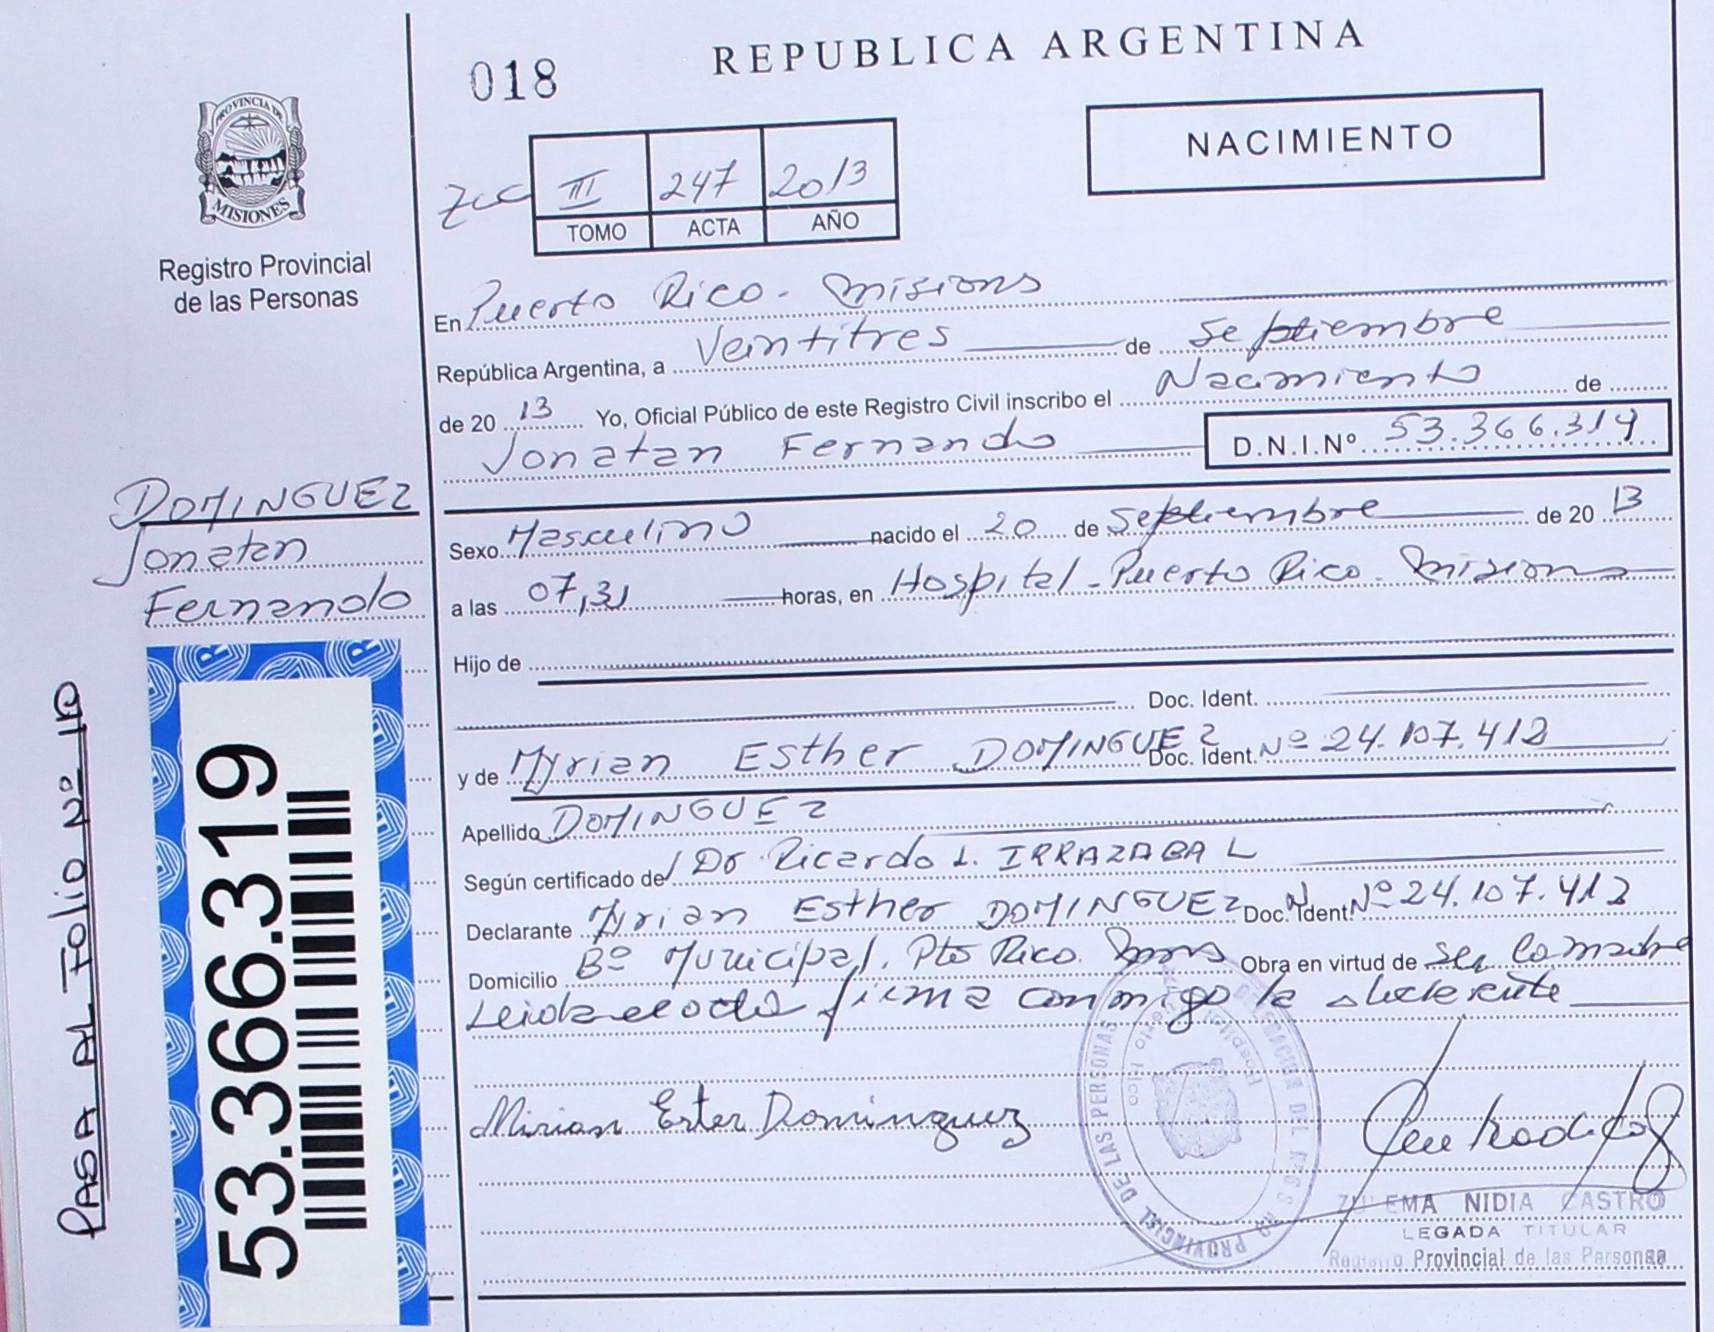 018
REPUBLICA ARGENTINA
NACIMIENTO
PROVINCIA DE
MISIONES
Registro Provincial
de las Personas
III 247 2013
TOMO ACTA AÑO
En Puerto Rico - Misions
República Argentina, a Veintitres de Septiembre
de 20 13 Yo, Oficial Público de este Registro Civil inscribo el Nacimiento de
Jonatan Fernando D.N.I.Nº 53.366.319
DOMINGUEZ
Jonatan
Fernando
Sexo Masculino nacido el 20 de Septiembre de 20 13
a las 07,31 horas, en Hospital - Puerto Rico - Misions
Hijo de
Doc. Ident.
y de Myrian Esther DOMINGUEZ Doc. Ident. Nº 24.107.412
Apellido DOMINGUEZ
Según certificado de Dr Ricardo L. IRRAZABAL
Declarante Myrian Esther DOMINGUEZ Doc. Ident. Nº 24.107.412
Domicilio Bº Municipal. Pto Rico. Mnes Obra en virtud de ser la madre
Leida el acta firma conmigo la declarante
Mirian Ester Dominguez
DELEGACION DEL REGISTRO PROVINCIAL DE LAS PERSONAS
Hospital Puerto Rico
ZULEMA NIDIA CASTRO
LEGADA TITULAR
Registro Provincial de las Personas
PASA AL FOLIO Nº 110
53.366.319